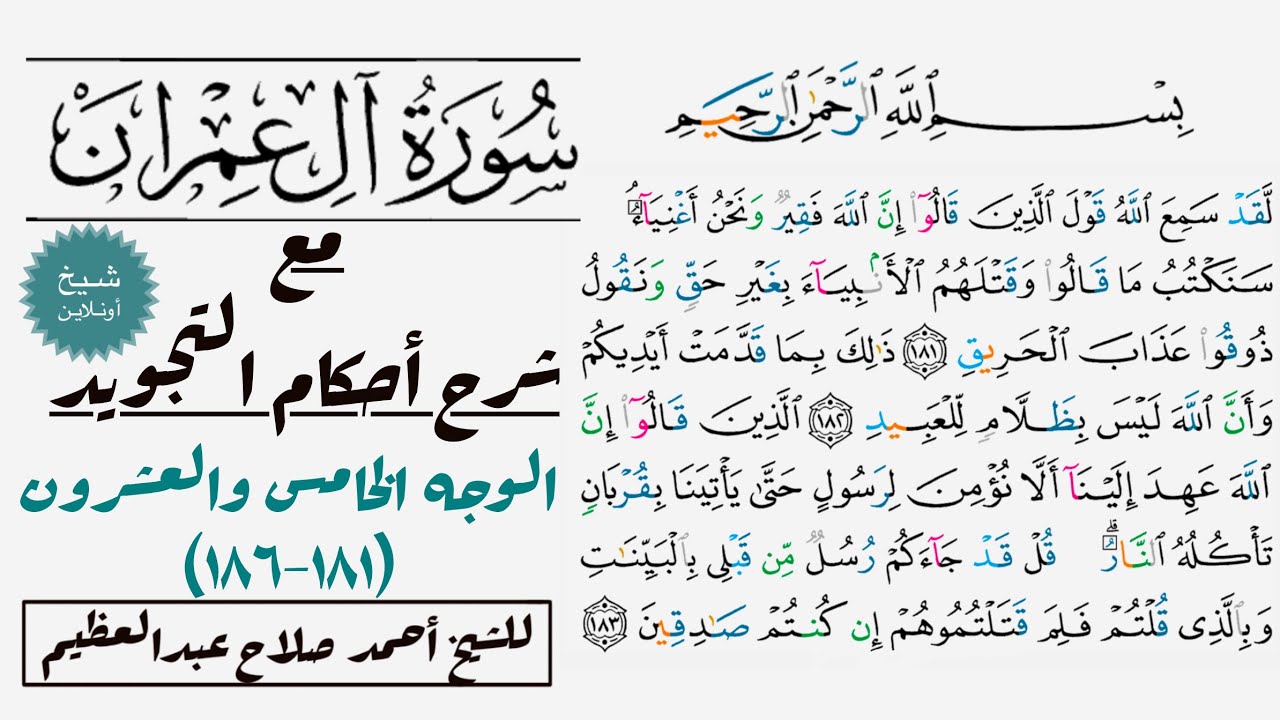 سُورَةُ آلِ عِمْرَانَ
شيخ
أونلاين
مع
شرح أحكام التجويد
الوجه الخامس والعشرون
(١٨١-١٨٦)
للشيخ أحمد صلاح عبدالعظيم
بِسْمِ ٱللَّهِ ٱلرَّحْمَٰنِ ٱلرَّحِيمِ
لَّقَدْ سَمِعَ ٱللَّهُ قَوْلَ ٱلَّذِينَ قَالُوٓا۟ إِنَّ ٱللَّهَ فَقِيرٌ وَنَحْنُ أَغْنِيَآءُ ۘ
سَنَكْتُبُ مَا قَالُوا۟ وَقَتْلَهُمُ ٱلْأَنۢبِيَآءَ بِغَيْرِ حَقٍّ وَنَقُولُ
ذُوقُوا۟ عَذَابَ ٱلْحَرِيقِ ١٨١ ذَٰلِكَ بِمَا قَدَّمَتْ أَيْدِيكُمْ
وَأَنَّ ٱللَّهَ لَيْسَ بِظَلَّامٍ لِّلْعَبِيدِ ١٨٢ ٱلَّذِينَ قَالُوٓا۟ إِنَّ
ٱللَّهَ عَهِدَ إِلَيْنَآ أَلَّا نُؤْمِنَ لِرَسُولٍ حَتَّىٰ يَأْتِيَنَا بِقُرْبَانٍ
تَأْكُلُهُ ٱلنَّارُ ۗ قُلْ قَدْ جَآءَكُمْ رُسُلٌ مِّن قَبْلِى بِٱلْبَيِّنَٰتِ
وَبِٱلَّذِى قُلْتُمْ فَلِمَ قَتَلْتُمُوهُمْ إِن كُنتُمْ صَٰدِقِينَ ١٨٣